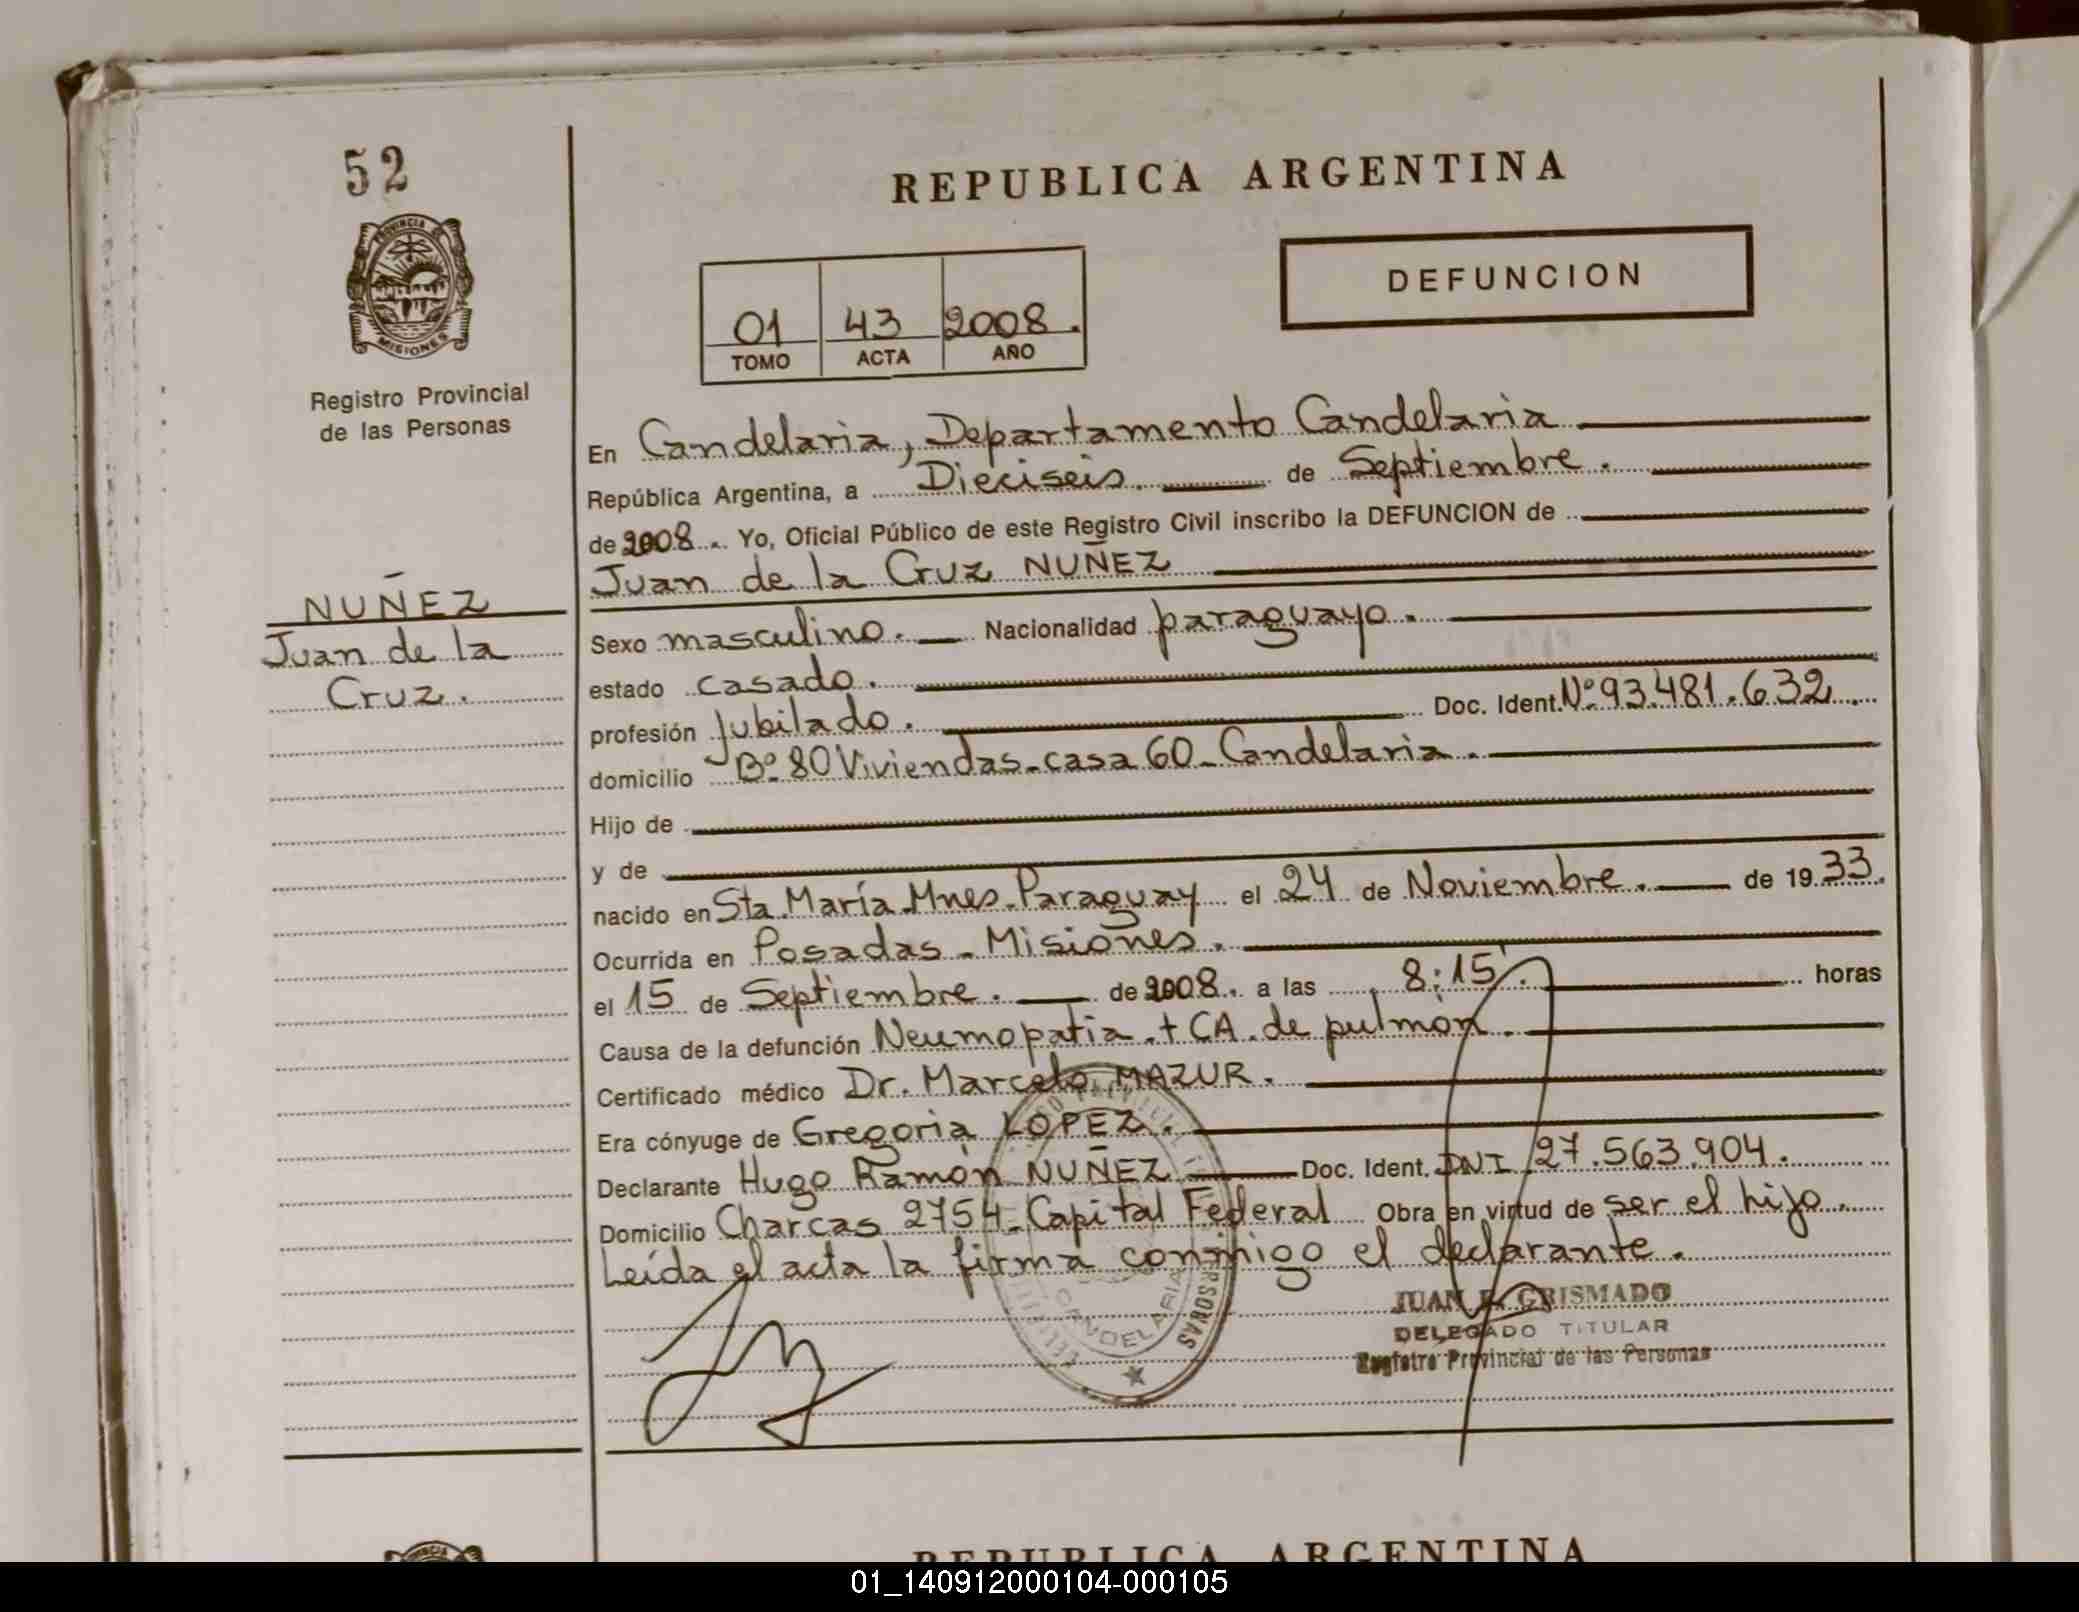 52
PROVINCIA DE
MISIONES
Registro Provincial
de las Personas
NUÑEZ
Juan de la
Cruz.
REPUBLICA ARGENTINA
DEFUNCION
01 43 2008.
TOMO ACTA AÑO
En Candelaria, Departamento Candelaria
República Argentina, a Dieciseis. de Septiembre.
de 2008. Yo, Oficial Público de este Registro Civil inscribo la DEFUNCION de
Juan de la Cruz NUÑEZ
Sexo masculino. Nacionalidad paraguayo.
estado casado.
profesión Jubilado. Doc. Ident. Nº 93.481.632
domicilio Bº 80 Viviendas-casa 60-Candelaria.
Hijo de
y de
nacido en Sta. María Mnes-Paraguay el 24 de Noviembre. de 1933.
Ocurrida en Posadas-Misiones.
el 15 de Septiembre. de 2008. a las 8:15'. horas
Causa de la defunción Neumopatia + CA. de pulmón.
Certificado médico Dr. Marcelo MAZUR.
Era cónyuge de Gregoria LOPEZ.
Declarante Hugo Ramón NUÑEZ Doc. Ident. DNI 27.563.904.
Domicilio Charcas 2754-Capital Federal Obra en virtud de ser el hijo.
Leída el acta la firma conmigo el declarante.
CANDELARIA
PERSONAS
JUAN GRISMADO
DELEGADO TITULAR
Registro Provincial de las Personas
REPUBLICA ARGENTINA
01_140912000104-000105